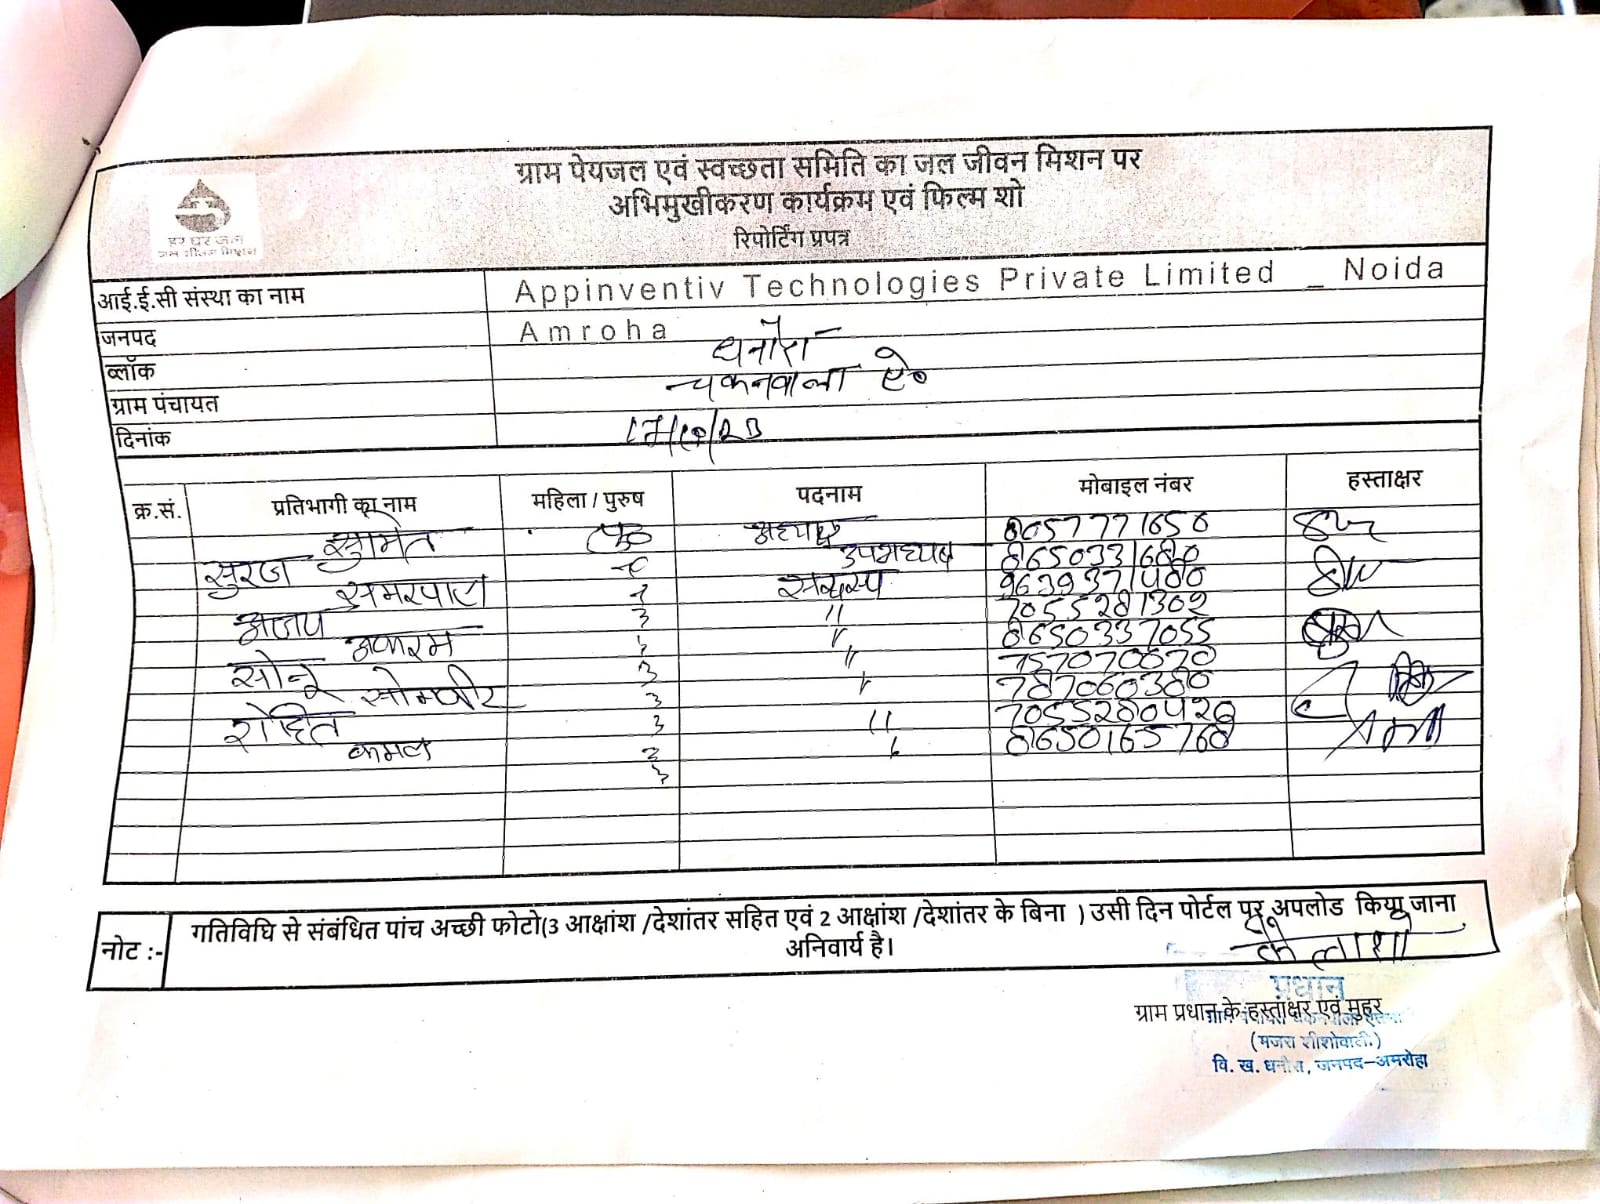 ग्राम पेयजल एवं स्वच्छता समिति का जल जीवन मिशन पर
अभिमुखीकरण कार्यक्रम एवं फिल्म शो
रिपोर्टिंग प्रपत्र
हर घर जल
जल जीवन मिशन
आई.ई.सी संस्था का नाम Appinventiv Technologies Private Limited _ Noida
जनपद Amroha
ब्लॉक धनौरा
ग्राम पंचायत चकनवाला ऐ०
दिनांक
क्र.सं. प्रतिभागी का नाम महिला / पुरुष पदनाम मोबाइल नंबर हस्ताक्षर
सुमित पु० अध्यक्ष 8657771658
सुरज उपाध्यक्ष 8650331680
समरपाल सदस्य 9639371480
अजय " 7055281302
अकरम " 8650337055
सोनू " 757070870
सोमवीर " 787060380
रोहित " 7055280426
कमल " 8650165768
नोट :- गतिविधि से संबंधित पांच अच्छी फोटो(3 आक्षांश /देशांतर सहित एवं 2 आक्षांश /देशांतर के बिना ) उसी दिन पोर्टल पर अपलोड किया जाना
अनिवार्य है।
प्रधान
ग्राम प्रधान के हस्ताक्षर एवं मुहर
(मजरा शीशोवाली)
वि. ख. धनौरा, जनपद-अमरोहा